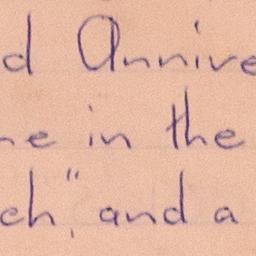 d Annive
ne in the
ch", and a